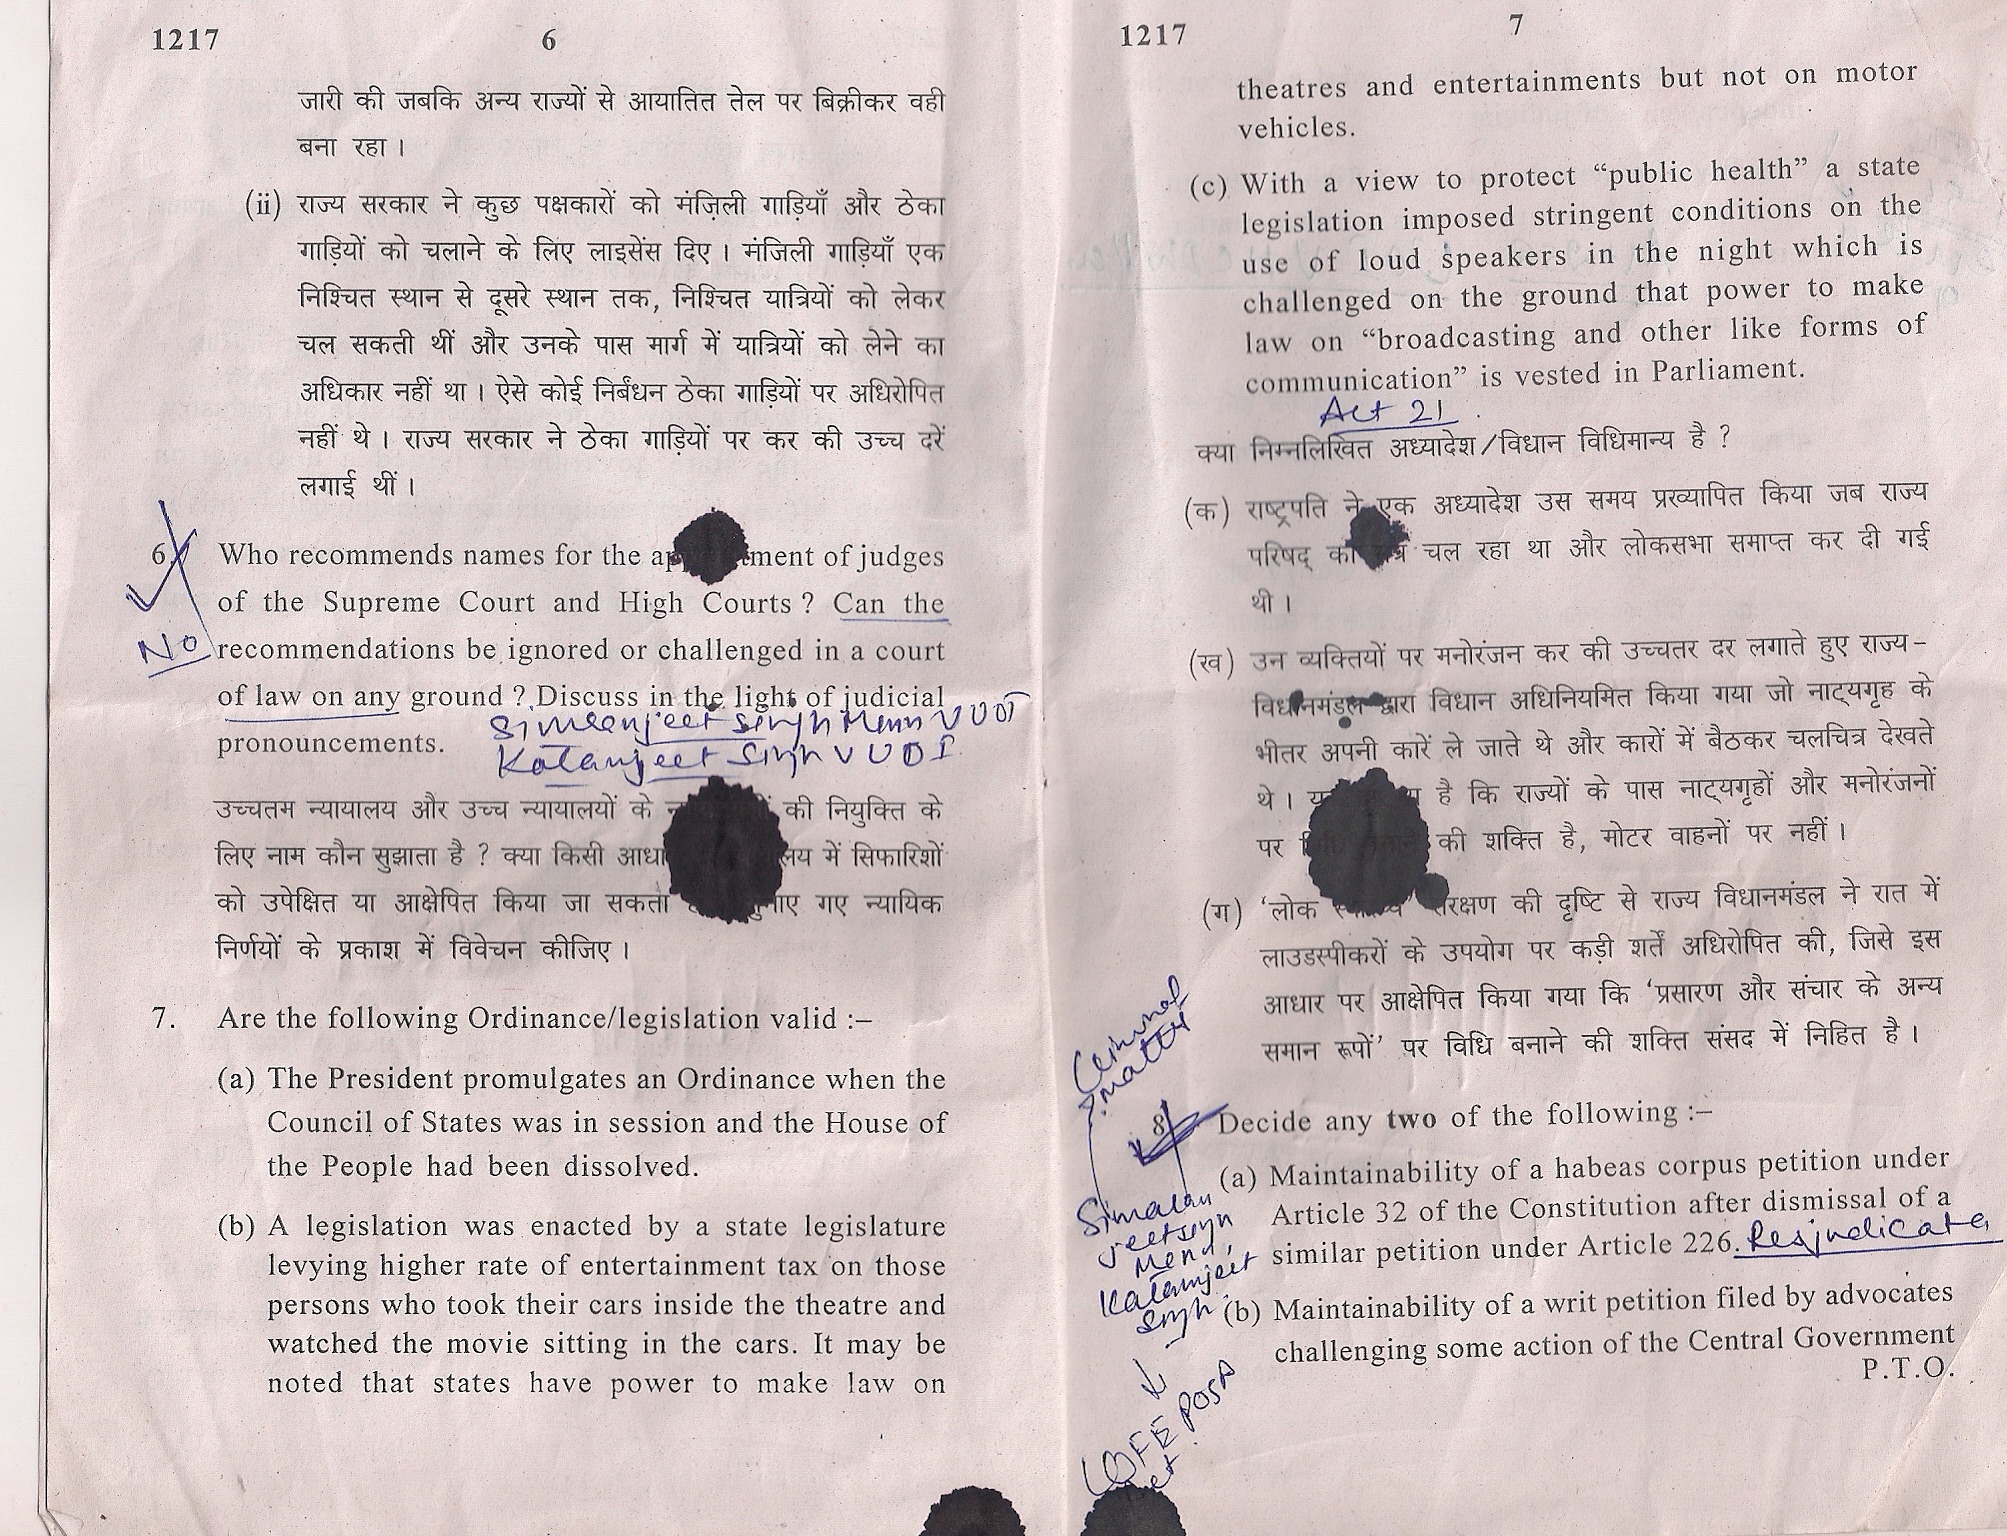 1217
6
जारी की जबकि अन्य राज्यों से आयातित तेल पर बिक्रीकर वही
बना रहा ।
(ii) राज्य सरकार ने कुछ पक्षकारों को मंज़िली गाड़ियाँ और ठेका
गाड़ियों को चलाने के लिए लाइसेंस दिए । मंजिली गाड़ियाँ एक
निश्चित स्थान से दूसरे स्थान तक, निश्चित यात्रियों को लेकर
चल सकती थीं और उनके पास मार्ग में यात्रियों को लेने का
अधिकार नहीं था । ऐसे कोई निर्बंधन ठेका गाड़ियों पर अधिरोपित
नहीं थे । राज्य सरकार ने ठेका गाड़ियों पर कर की उच्च दरें
लगाई थीं ।
6. Who recommends names for the of judges
of the Supreme Court and High Courts ? Can the
No recommendations be ignored or challenged in a court
of law on any ground ? Discuss in the light of judicial
Simranjeet Singh Mann V UOI
pronouncements.
Katanjeet Singh V UOI
उच्चतम न्यायालय और उच्च न्यायालयों के की नियुक्ति के
लिए नाम कौन सुझाता है ? क्या किसी में सिफारिशों
को उपेक्षित या आक्षेपित किया जा सकता गए न्यायिक
निर्णयों के प्रकाश में विवेचन कीजिए ।
7. Are the following Ordinance/legislation valid :–
(a) The President promulgates an Ordinance when the
Council of States was in session and the House of
the People had been dissolved.
(b) A legislation was enacted by a state legislature
levying higher rate of entertainment tax on those
persons who took their cars inside the theatre and
watched the movie sitting in the cars. It may be
noted that states have power to make law on
1217
7
theatres and entertainments but not on motor
vehicles.
(c) With a view to protect “public health” a state
legislation imposed stringent conditions on the
use of loud speakers in the night which is
challenged on the ground that power to make
law on “broadcasting and other like forms of
communication” is vested in Parliament.
Act 21
क्या निम्नलिखित अध्यादेश/विधान विधिमान्य है ?
(क) राष्ट्रपति ने एक अध्यादेश उस समय प्रख्यापित किया जब राज्य
परिषद् चल रहा था और लोकसभा समाप्त कर दी गई
थी ।
(ख) उन व्यक्तियों पर मनोरंजन कर की उच्चतर दर लगाते हुए राज्य–
विधानमंडल द्वारा विधान अधिनियमित किया गया जो नाट्यगृह के
भीतर अपनी कारें ले जाते थे और कारों में बैठकर चलचित्र देखते
थे । है कि राज्यों के पास नाट्यगृहों और मनोरंजनों
पर की शक्ति है, मोटर वाहनों पर नहीं ।
(ग) ‘लोक संरक्षण की दृष्टि से राज्य विधानमंडल ने रात में
लाउडस्पीकरों के उपयोग पर कड़ी शर्तें अधिरोपित की, जिसे इस
आधार पर आक्षेपित किया गया कि ‘प्रसारण और संचार के अन्य
समान रूपों’ पर विधि बनाने की शक्ति संसद में निहित है ।
Criminal
matter
8. Decide any two of the following :–
(a) Maintainability of a habeas corpus petition under
Article 32 of the Constitution after dismissal of a
similar petition under Article 226. Resjudicata
Katamjeet
Singh
(b) Maintainability of a writ petition filed by advocates
challenging some action of the Central Government
P.T.O.
COFEPOSA